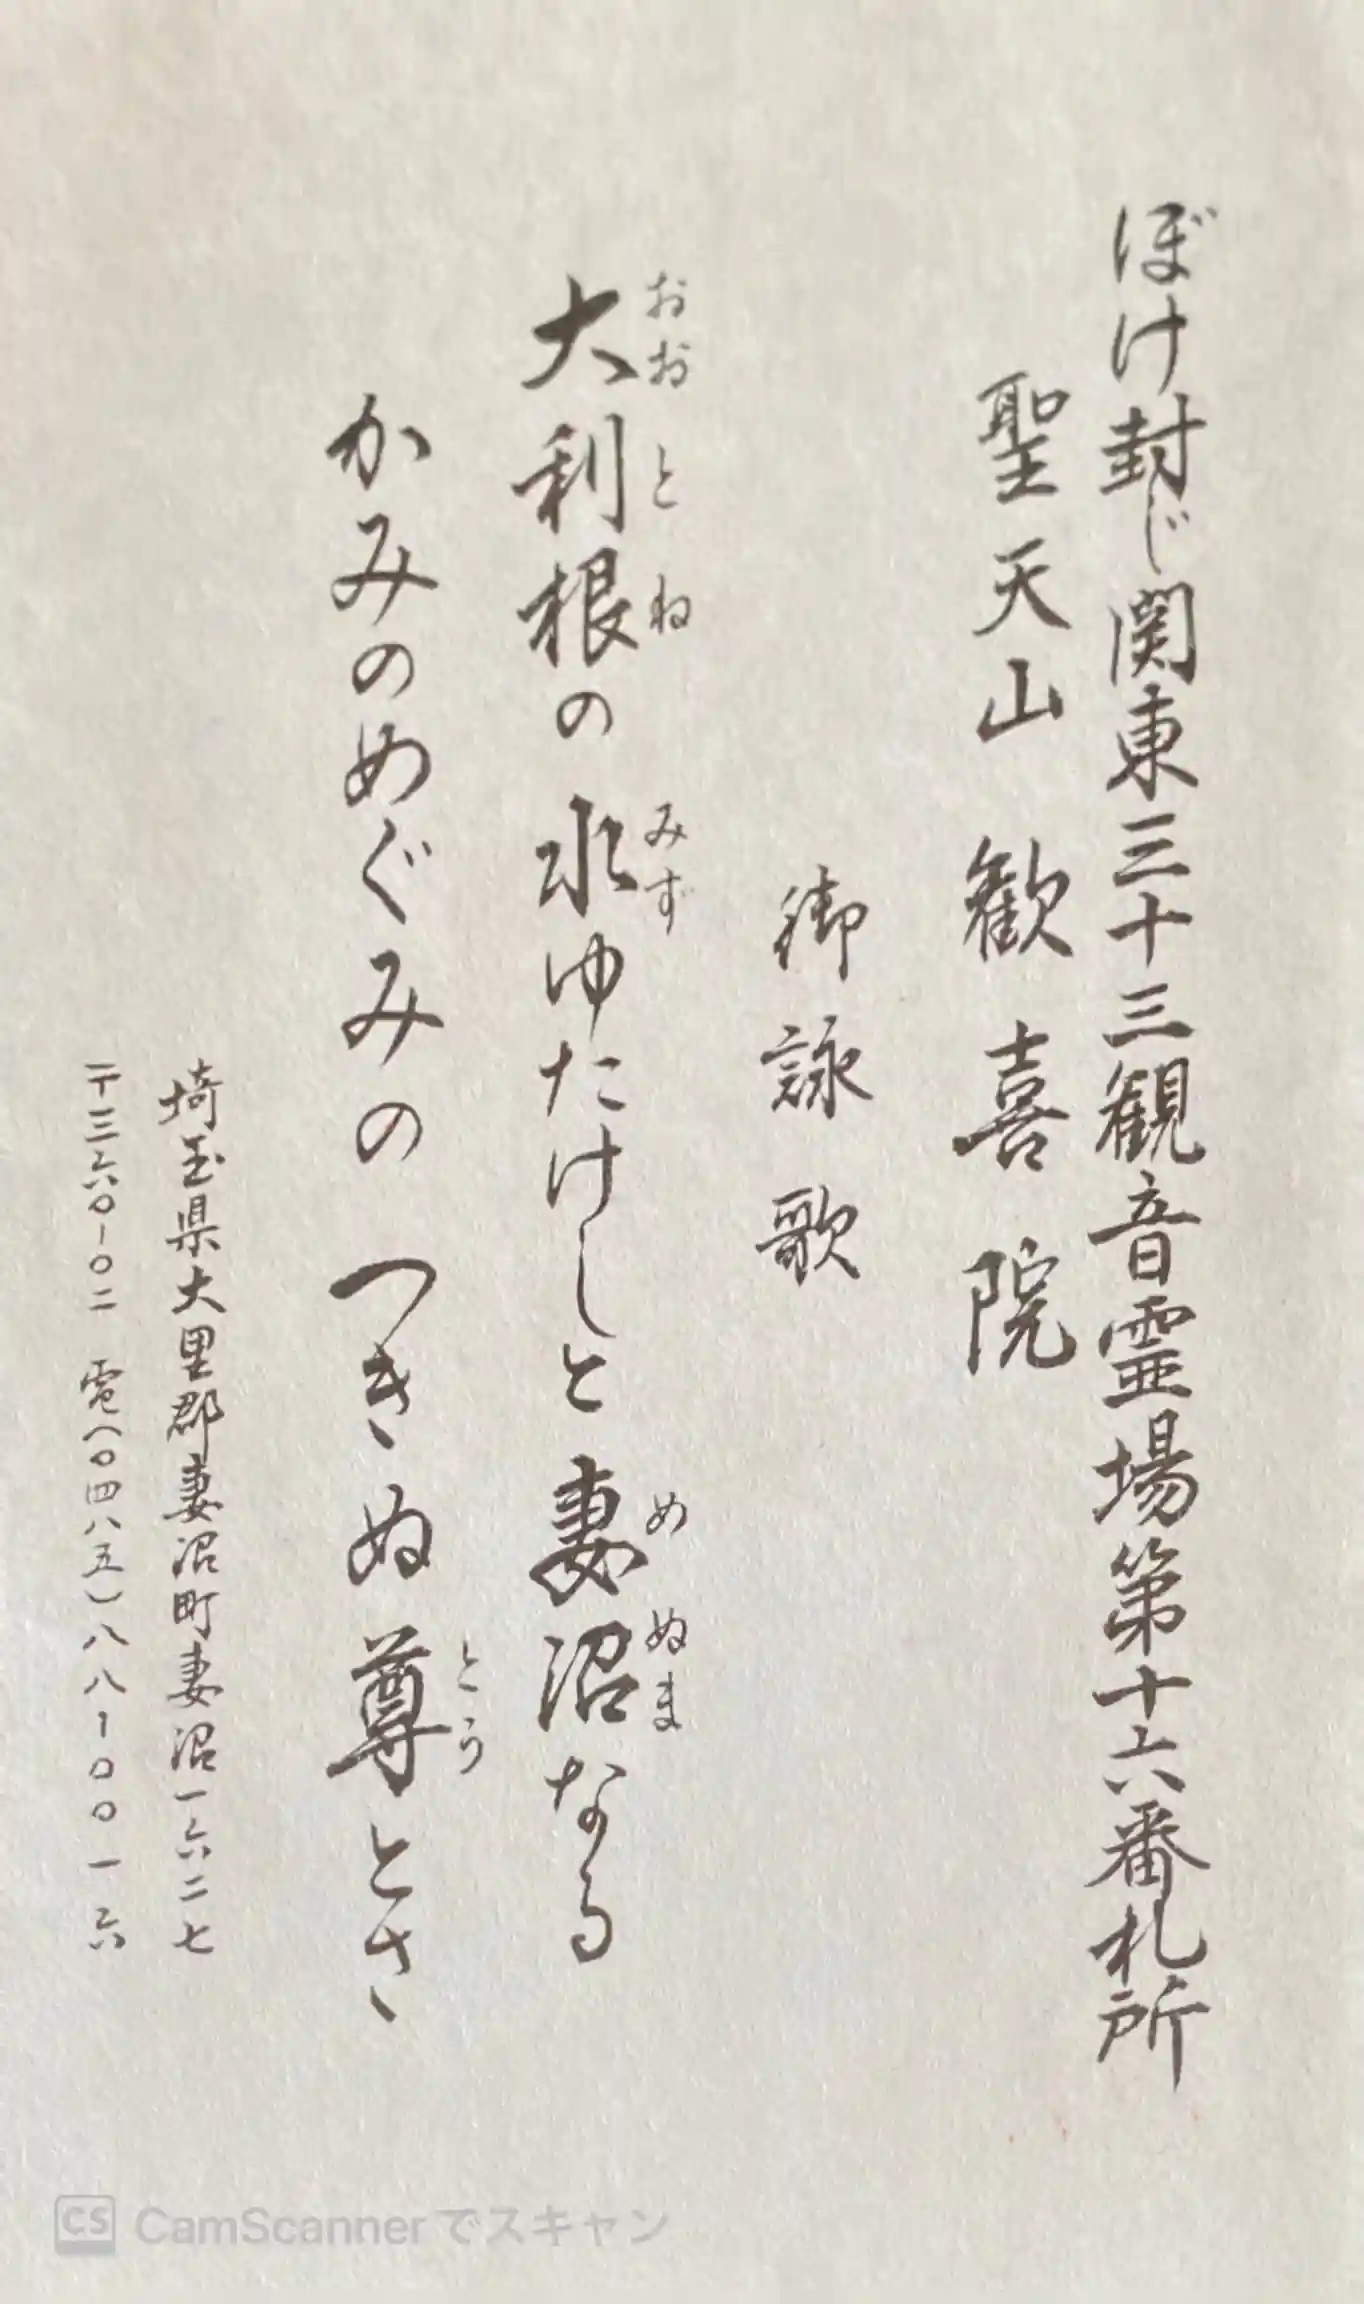 ぼけ封じ関東三十三観音霊場第十六番札所
聖天山 歓喜院
御詠歌
大利根の水ゆたけしと妻沼なる
おおとね みず めぬま
かみのめぐみのつきぬ尊とさ
とう
埼玉県大里郡妻沼町妻沼一六二七
〒三六〇-〇二 電(〇四八五)八八-〇〇一六
CS CamScannerでスキャン